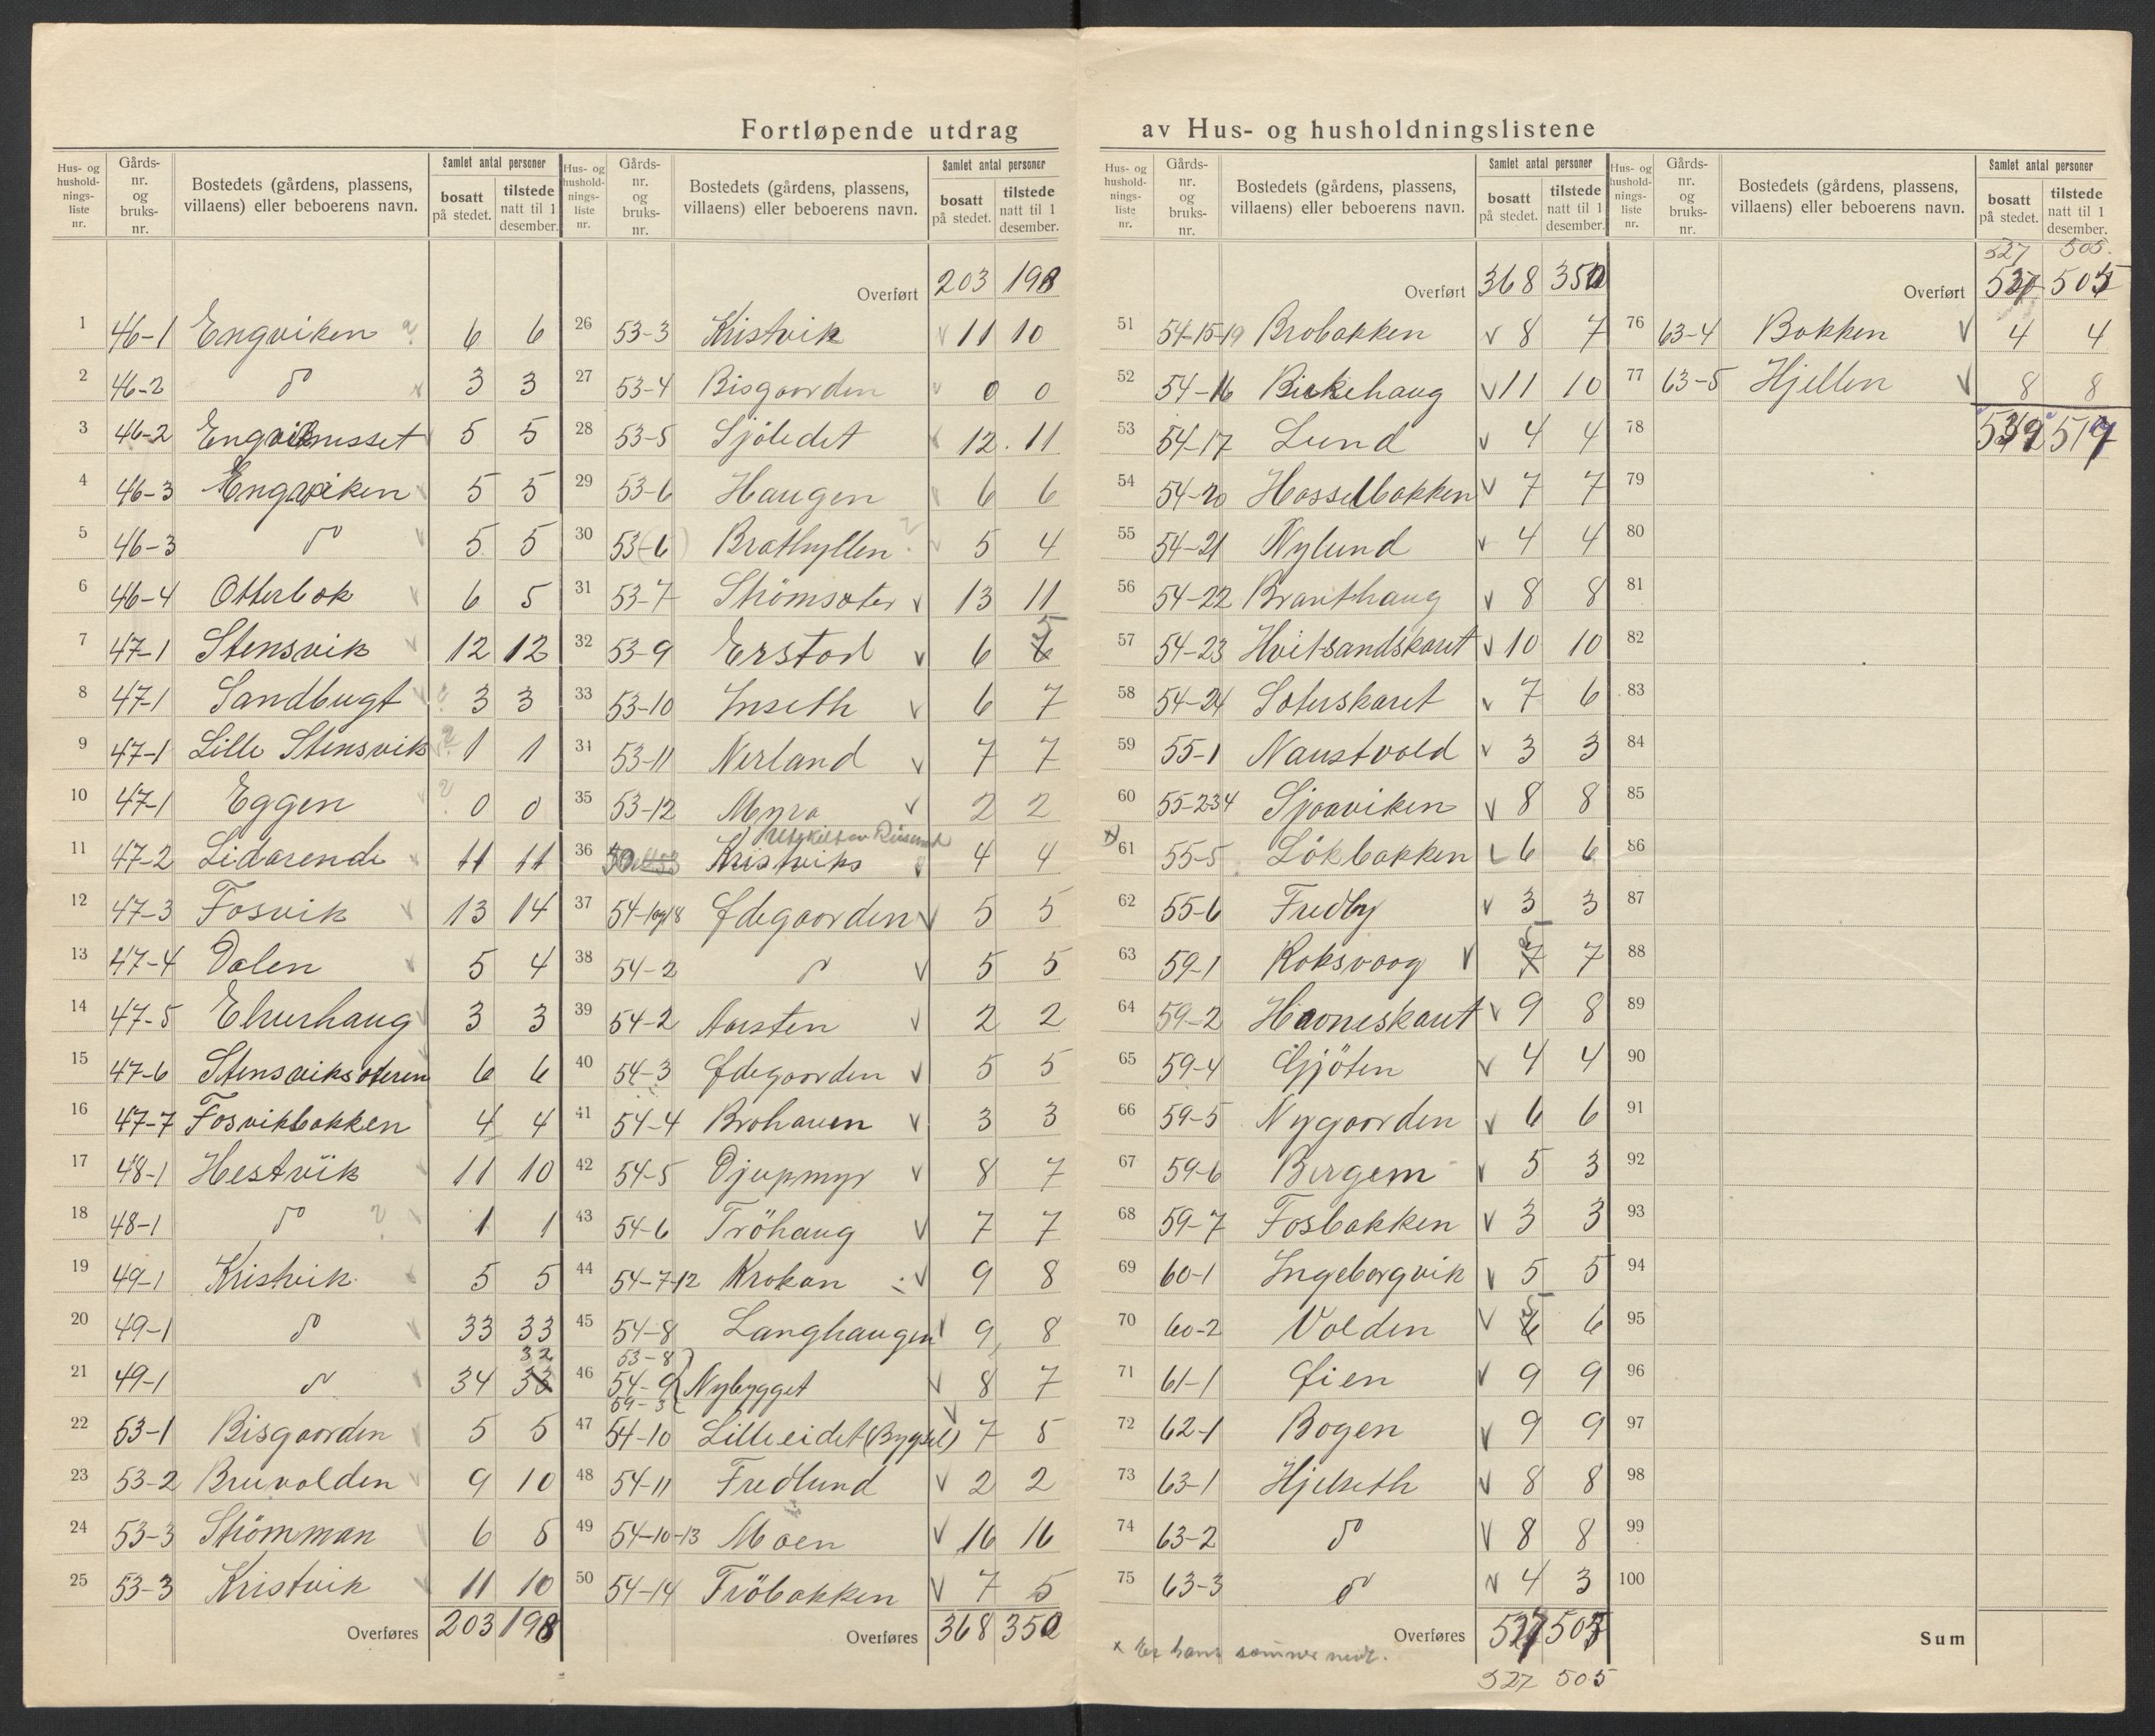 Fortløpende utdrag av Hus- og husholdningslistene
Hus- og husholdnings-liste nr. | Gårds-nr. og bruks-nr. | Bostedets (gårdens, plassens, villaens) eller beboerens navn. | Samlet antal personer | bosatt på stedet. | tilstede natt til 1 desember.
1 46-1 Engviken 6 6
2 46-2 do 3 3
3 46-2 Engviknesset 5 5
4 46-3 Engviken 5 5
5 46-3 do 5 5
6 46-4 Otterbak 6 5
7 47-1 Stensvik 12 12
8 47-1 Sandbugt 3 3
9 47-1 Lille Stensvik 1 1
10 47-1 Eggen 0 0
11 47-2 Lidarende 11 11
12 47-3 Fosvik 13 14
13 47-4 Dalen 5 4
14 47-5 Elvurhaug 3 3
15 47-6 Stensviksæteren 6 6
16 47-7 Fosvikbakken 4 4
17 48-1 Hestvik 11 10
18 48-1 do 1 1
19 49-1 Kristvik 5 5
20 49-1 do 33 33
21 49-1 do 34 32
22 53-1 Bisgaarden 5 5
23 53-2 Bruvolden 9 10
24 53-3 Strömman 6 5
25 53-3 Kristvik 11 10
Overføres 203 198
Hus- og husholdnings-liste nr. | Gårds-nr. og bruks-nr. | Bostedets (gårdens, plassens, villaens) eller beboerens navn. | Samlet antal personer | bosatt på stedet. | tilstede natt til 1 desember.
Overført 203 198
26 53-3 Kristvik 11 10
27 53-4 Bisgaarden 0 0
28 53-5 Sjöledet 12 11
29 53-6 Haugen 6 6
30 53(-6) Brathyllen 5 4
31 53-7 Strömsæter 13 11
32 53-9 Erstad 6 5
33 53-10 Inseth 6 7
34 53-11 Nerland 7 7
35 53-12 Myra 2 2
36 Kristviks 4 4
37 54-1og18 Ødegaarden 5 5
38 54-2 do 5 5
39 54-2 Aasten 2 2
40 54-3 Ødegaarden 5 5
41 54-4 Brohaven 3 3
42 54-5 Djupmyr 8 7
43 54-6 Tröhaug 7 7
44 54-7-12 Krokan 9 8
45 54-8 Langhaugen 9 8
53-8
46 54-9 Nybygget 8 7
59-3
47 54-10 Lilleeidet (Bygsel) 7 5
48 54-11 Fredlund 2 2
49 54-10-13 Moen 16 16
50 54-14 Tröbakken 7 5
Overføres 368 350
Hus- og husholdnings-liste nr. | Gårds-nr. og bruks-nr. | Bostedets (gårdens, plassens, villaens) eller beboerens navn. | Samlet antal personer | bosatt på stedet. | tilstede natt til 1 desember.
Overført 368 350
51 54-15-19 Brobakken 8 7
52 54-16 Birkehaug 11 10
53 54-17 Lund 4 4
54 54-20 Hasselbakken 7 7
55 54-21 Nylund 4 4
56 54-22 Brauthaug 8 8
57 54-23 Hvitsandskaret 10 10
58 54-24 Sæterskaret 7 6
59 55-1 Naustvold 3 3
60 55-234 Sjoaviken 8 8
x) 61 55-5 Lökbakken 6 6
62 55-6 Fredly 3 3
63 59-1 Roksvaag 5 7
64 59-2 Havneskaret 9 8
65 59-4 Gjöten 4 4
66 59-5 Nygaarden 6 6
67 59-6 Bergem 5 3
68 59-7 Fosbakken 3 3
69 60-1 Ingeborgvik 5 5
70 60-2 Volden 5 6
71 61-1 Øien 9 9
72 62-1 Bogen 9 9
73 63-1 Hjelseth 8 8
74 63-2 do 8 8
75 63-3 do 4 3
Overføres 527 505
527 505
Hus- og husholdnings-liste nr. | Gårds-nr. og bruks-nr. | Bostedets (gårdens, plassens, villaens) eller beboerens navn. | Samlet antal personer | bosatt på stedet. | tilstede natt til 1 desember.
527 505.
Overført 527 505
76 63-4 Bakken 4 4
77 63-5 Hjellen 8 8
78 539 517
79
80
81
82
83
84
85
86
87
88
89
90
91
92
93
94
95
96
97
98
99
100
Sum